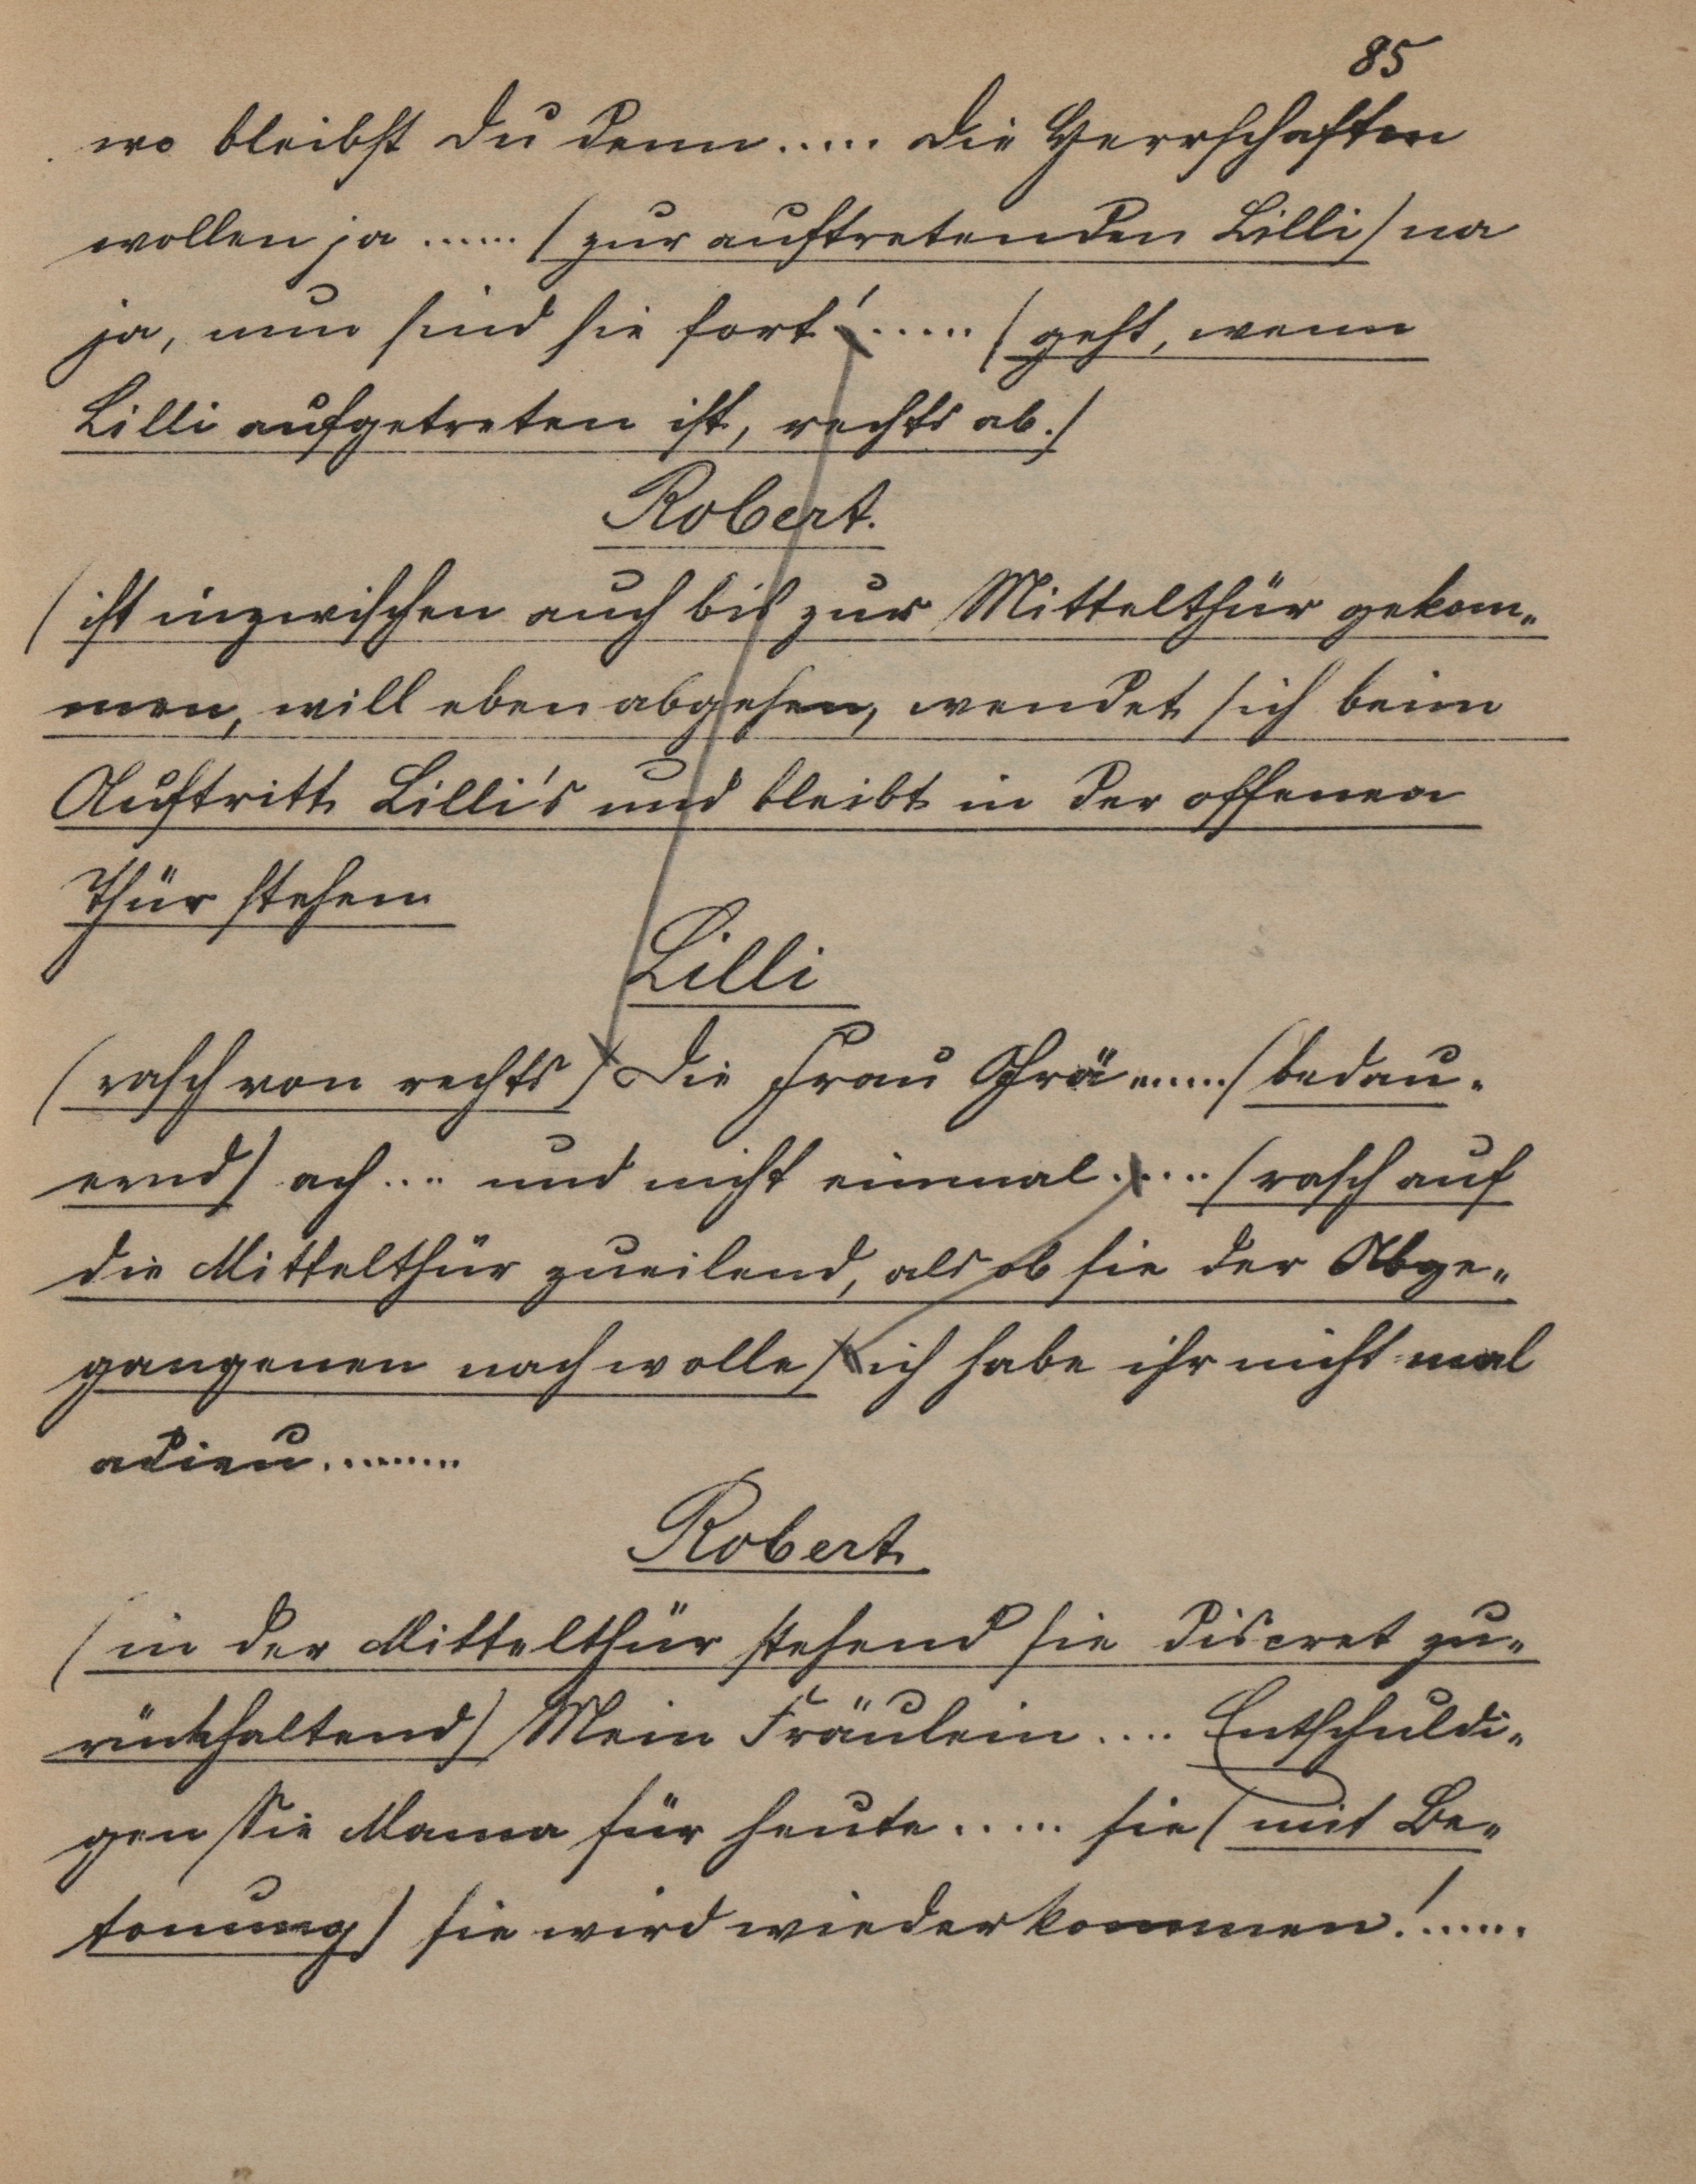 85
wo bleibst du denn..... die Herrschaften
wollen ja ...... (zur auftretenden Lilli) na
ja, nun sind sie fort!..... (geht, wenn
Lilli aufgetreten ist, rechts ab.)
Robert.
(ist inzwischen auch bis zur Mittelthür gekom„
men, will eben abgehen, wendet sich beim
Auftritt Lilli's und bleibt in der offenen
Thür stehen
Lilli
(rasch von rechts) Die Frau Grä...... (bedau-
ernd) ach.... und nicht einmal..... (rasch auf
die Mittelthür zueilend, als ob sie der Abge„
gangenen nach wolle) ich habe ihr nicht mal
adieu.........
Robert
(in der Mittelthür stehend sie discret zu„
rückhaltend) Mein Fräulein.... Entschuldi„
gen Sie Mama für heute..... sie (mit Be„
tonung) sie wird wiederkommen!......